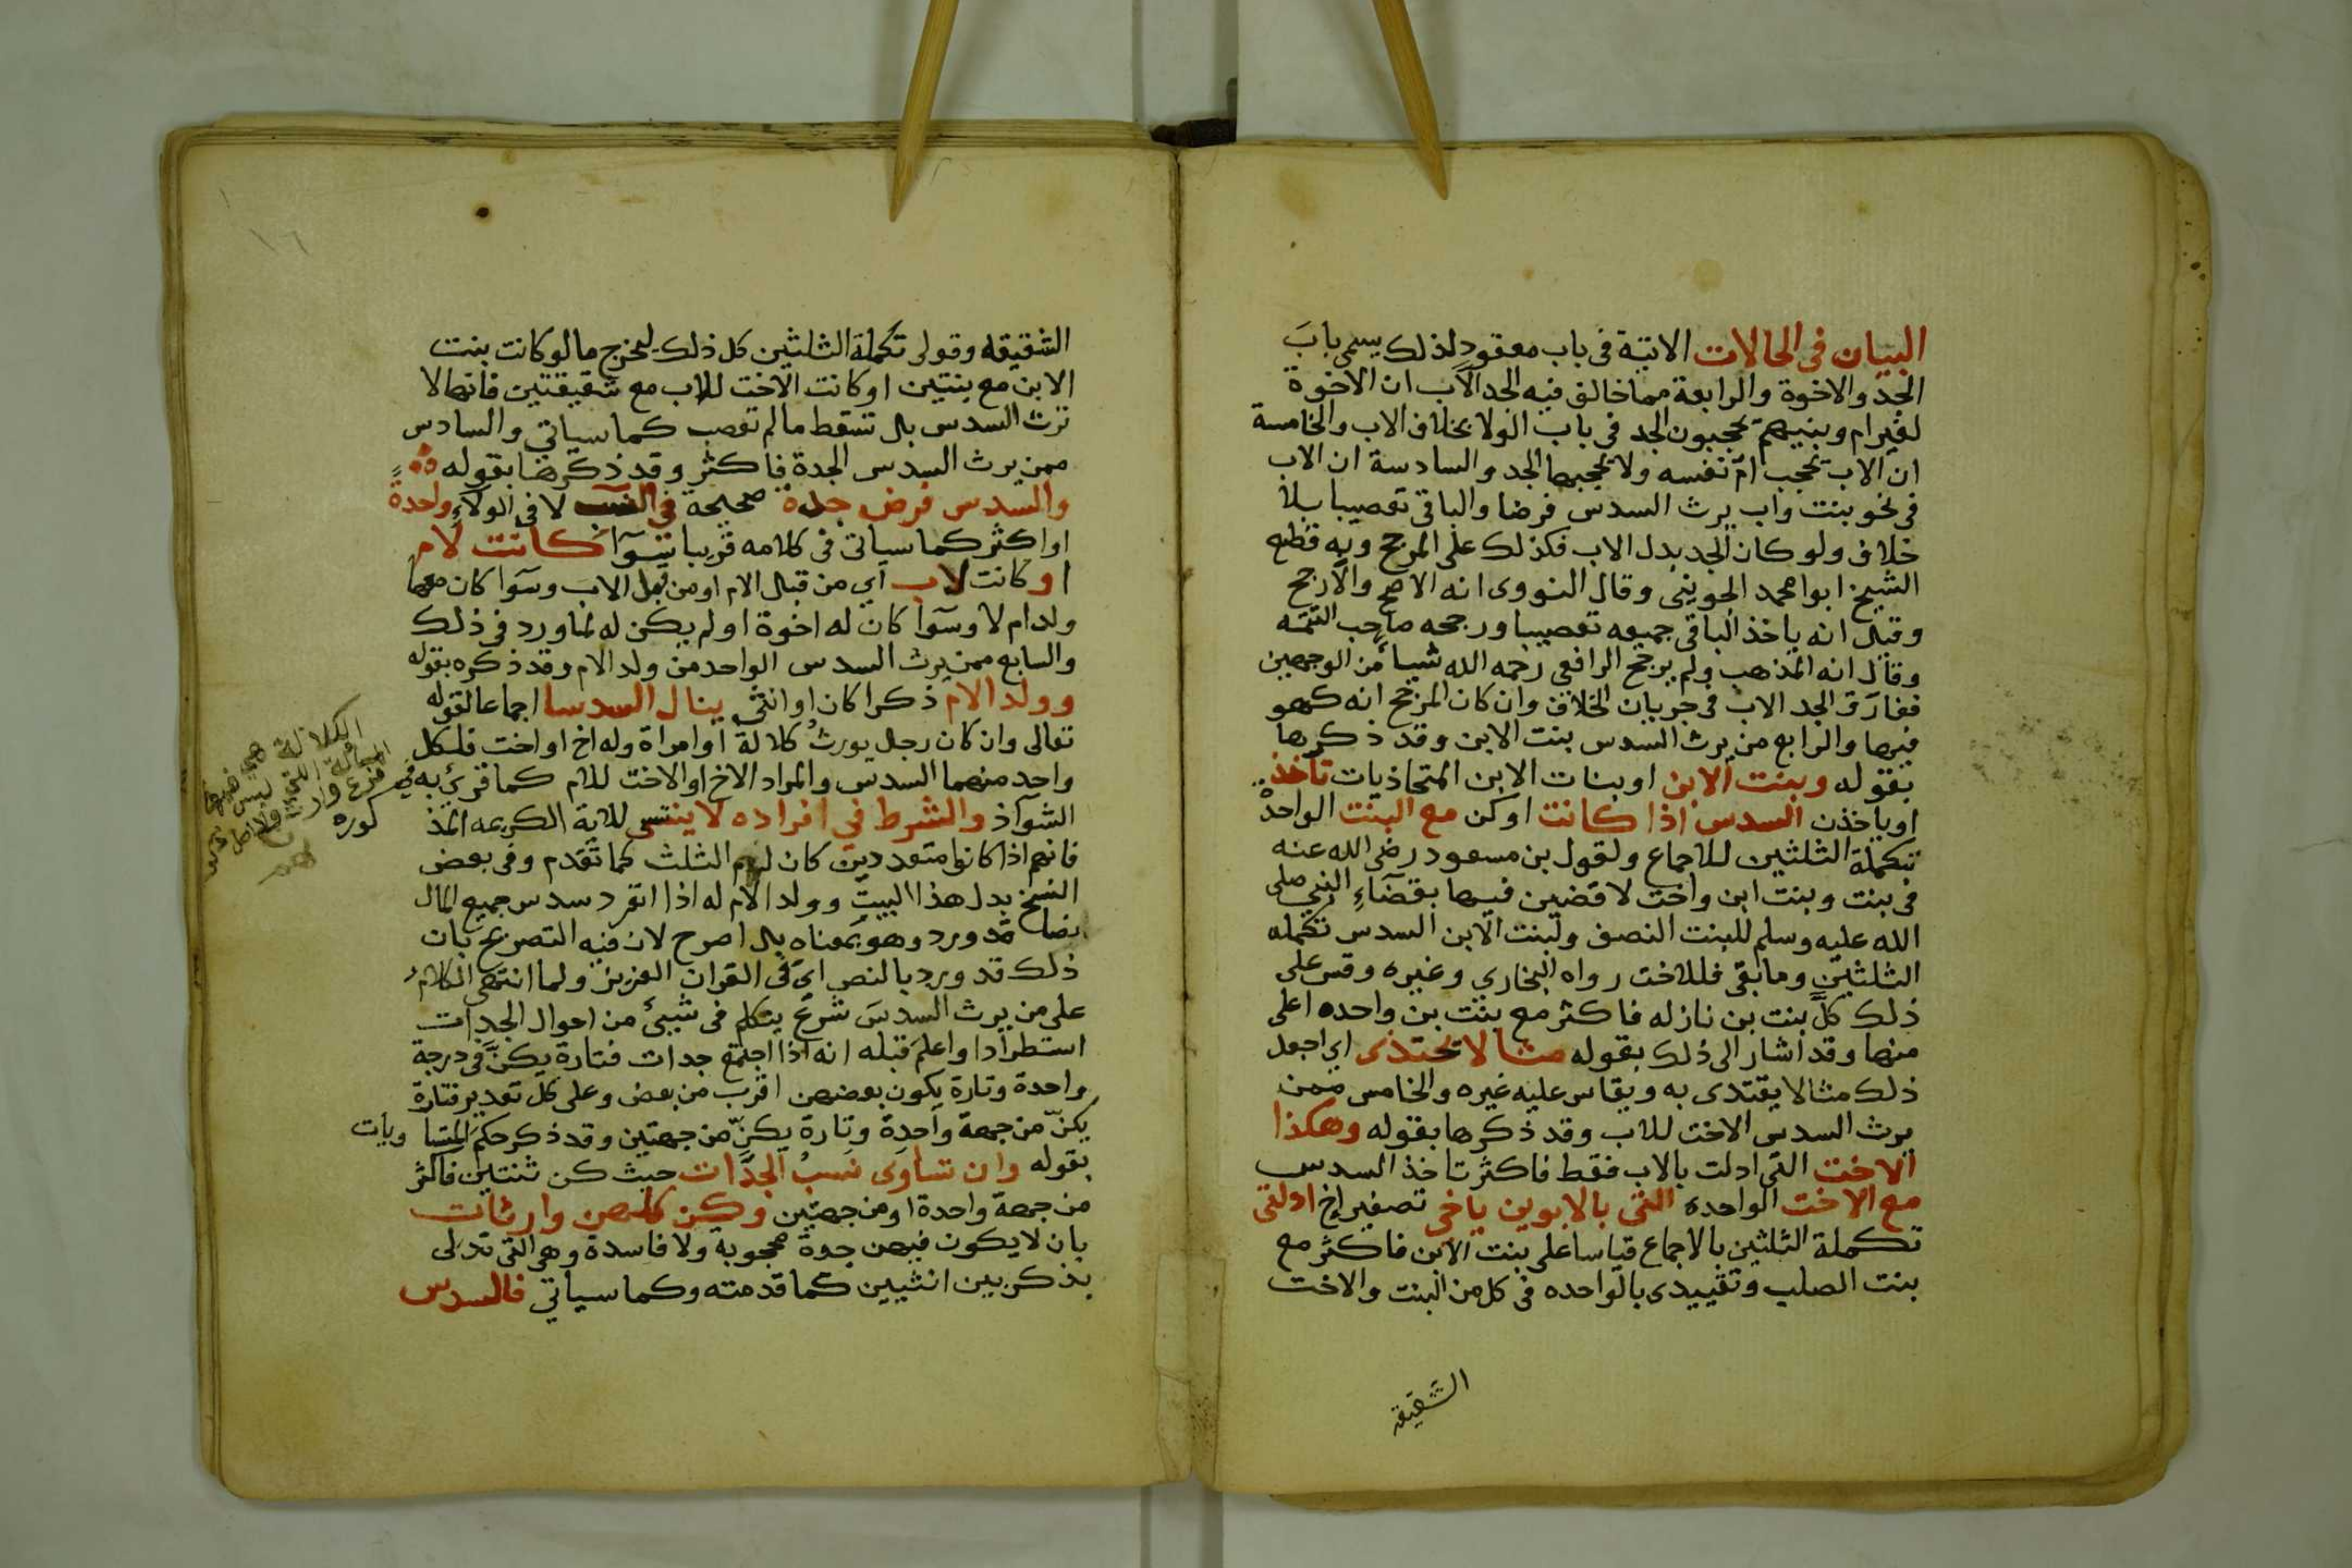 البيان في الحالات الاتية في باب معقود لذلك يسمى باب
الجد والاخوة والرابعة مما خالف فيه الجد الاب ان الاخوة
لغير ام وبنيهم يحجبون الجد في باب الولا بخلاف الاب والخامسة
ان الاب يحجب ام نفسه ولا يحجبها الجد والسادسة ان الاب
في نحو بنت واب يرث السدس فرضا والباقي تعصيبا بلا
خلاف ولو كان الجد بدل الاب فكذلك على المرجح وبه قطع
الشيخ ابوا محمد الجويني وقال النووي انه الاصح والارجح
وقيل انه ياخذ الباقي جميعه تعصيبا ورجحه صاحب التتمه
وقال انه المذهب ولم يرجح الرافعي رحمه الله شيئا من الوجهين
ففارق الجد الاب في جريان الخلاف وان كان المرجح انه كهو
فيها والرابع من يرث السدس بنت الابن وقد ذكرها
بقوله وبنت الابن او بنات الابن المتحاذيات تاخذ
او ياخذن السدس اذا كانت او كن مع البنت الواحدة
تكملة الثلثين للاجماع ولقول بن مسعود رضي الله عنه
في بنت وبنت ابن واخت لاقضين فيها بقضاء النبي صلى
الله عليه وسلم للبنت النصف ولبنت الابن السدس تكمله
الثلثين وما بقي فللاخت رواه البخاري وغيره وقس على
ذلك كل بنت بن نازله فاكثر مع بنت بن واحده اعلى
منها وقد اشار الى ذلك بقوله مثالا يحتذى اي اجعل
ذلك مثالا يقتدى به ويقاس عليه غيره والخامس ممن
يرث السدس الاخت للاب وقد ذكرها بقوله وهكذا
الاخت التي ادلت بالاب فقط فاكثر تاخذ السدس
مع الاخت الواحده التي بالابوين ياخي تصغير اخ ادلتي
تكملة الثلثين بالاجماع قياسا على بنت الابن فاكثر مع
بنت الصلب وتقييدى بالواحده في كل من البنت والاخت
الشقيقه
١٦
الشقيقه وقولى تكملة الثلثين كل ذلك ليخرج مالو كانت بنت
الابن مع بنتين او كانت الاخت للاب مع شقيقتين فانها لا
ترث السدس بل تسقط مالم تعصب كما سياتي والسادس
ممن يرث السدس الجدة فاكثر وقد ذكرها بقوله
والسدس فرض جدة صحيحة في النسب لا في الولاء واحدة
او اكثر كما سياتي في كلامه قريبا سوآ كانت لام
او كانت لاب اي من قبل الام او من قبل الاب وسوآ كان معها
ولد ام لا وسوآ كان له اخوة او لم يكن له لما ورد في ذلك
والسابع ممن يرث السدس الواحد من ولد الام وقد ذكره بقوله
وولد الام ذكرا كان او انثى ينال السدسا اجماعا لقوله
تعالى وان كان رجل يورث كلالة او امراة وله اخ او اخت فلكل
واحد منهما السدس والمراد الاخ او الاخت للام كما قرئ به في
الشوآذ والشرط في افراده لا ينسى للاية الكريمه المذ
كوره
فانهم اذا كانوا متعددين كان لهم الثلث كما تقدم وفي بعض
النسخ بدل هذا البيت وولد الام له اذا انفرد سدس جميع المال
نصا قد ورد وهو بمعناه بل اصرح لان فيه التصريح بان
ذلك قد ورد بالنص اي في القران العزيز ولما انتهى الكلام
على من يرث السدس شرع يتكلم في شيئ من احوال الجدات
استطرادا واعلم قبله انه اذا اجتمع جدات فتارة يكن في درجة
واحدة وتارة يكون بعضهن اقرب من بعض وعلى كل تقدير فتارة
يكن من جهة واحدة وتارة يكن من جهتين وقد ذكر حكم المتساويات
بقوله وان تساوى نسب الجدات حيث كن ثنتين فاكثر
من جهة واحدة او من جهتين وكن كلهن وارثات
بان لا يكون فيهن جدة محجوبة ولا فاسدة وهي التي تدلى
بذكر بين انثيين كما قدمته وكما سياتي فالسدس
الكلالة هي
المسألة التي ليس فيها
فرع وارث ولا اصل